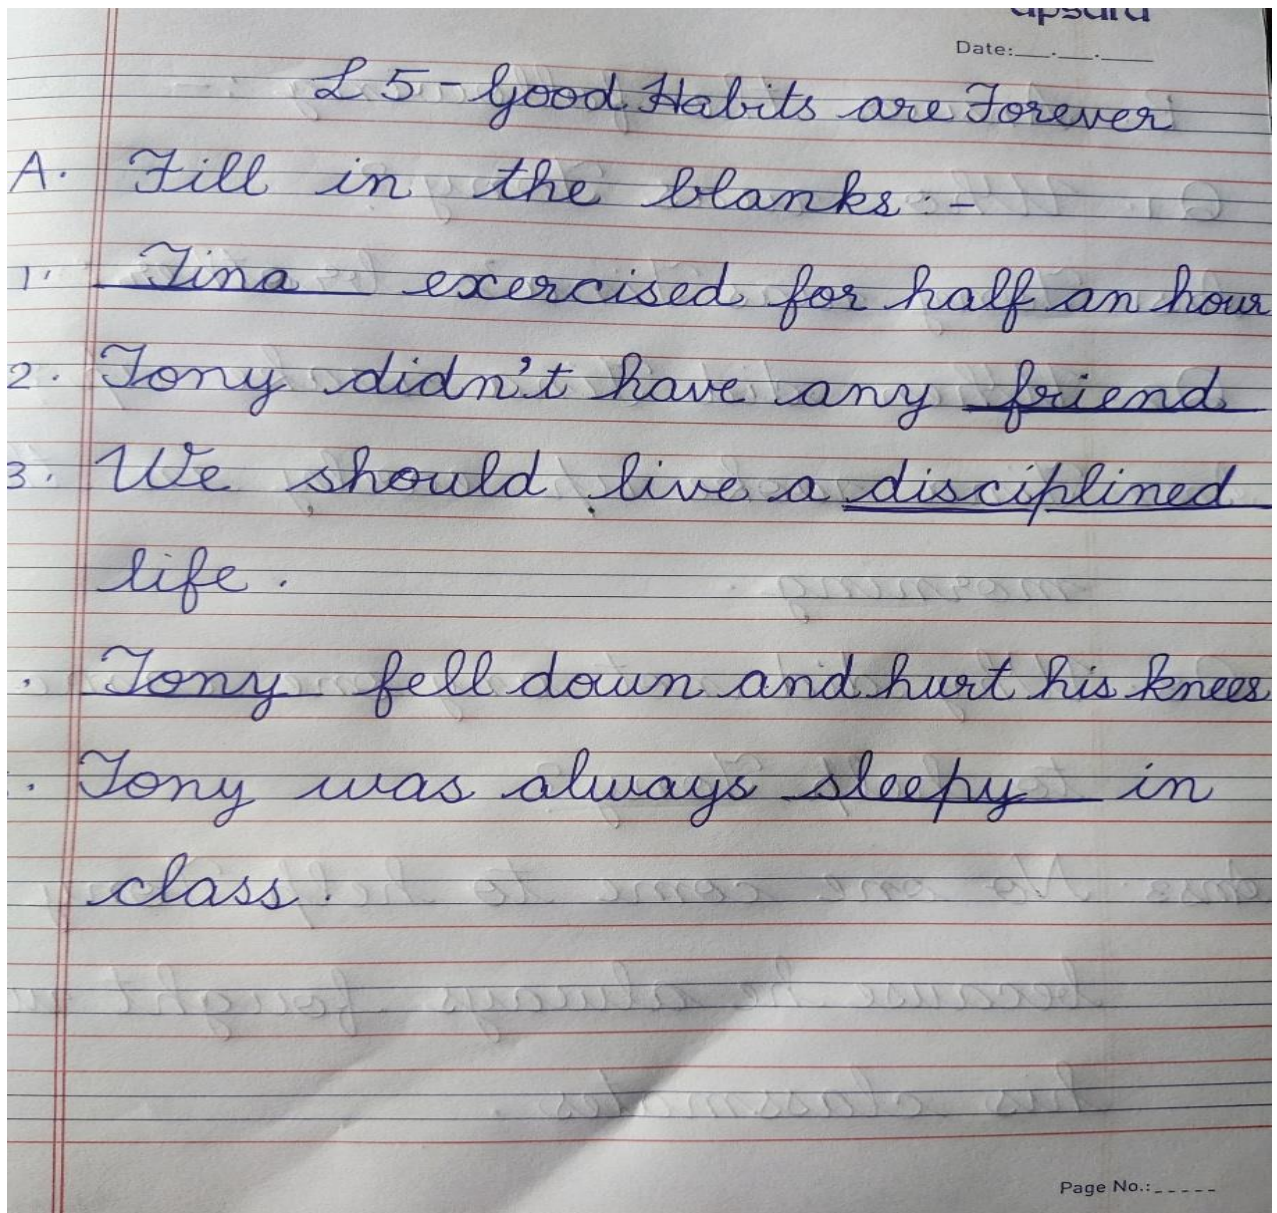 apsara
Date:___.___.___
L 5 - Good Habits are Forever
A. Fill in the blanks :-
1. Tina exercised for half an hour
2. Tony didn't have any friend
3. We should live a disciplined
life.
. Tony fell down and hurt his knees
. Tony was always sleepy in
class.
Page No.:-----